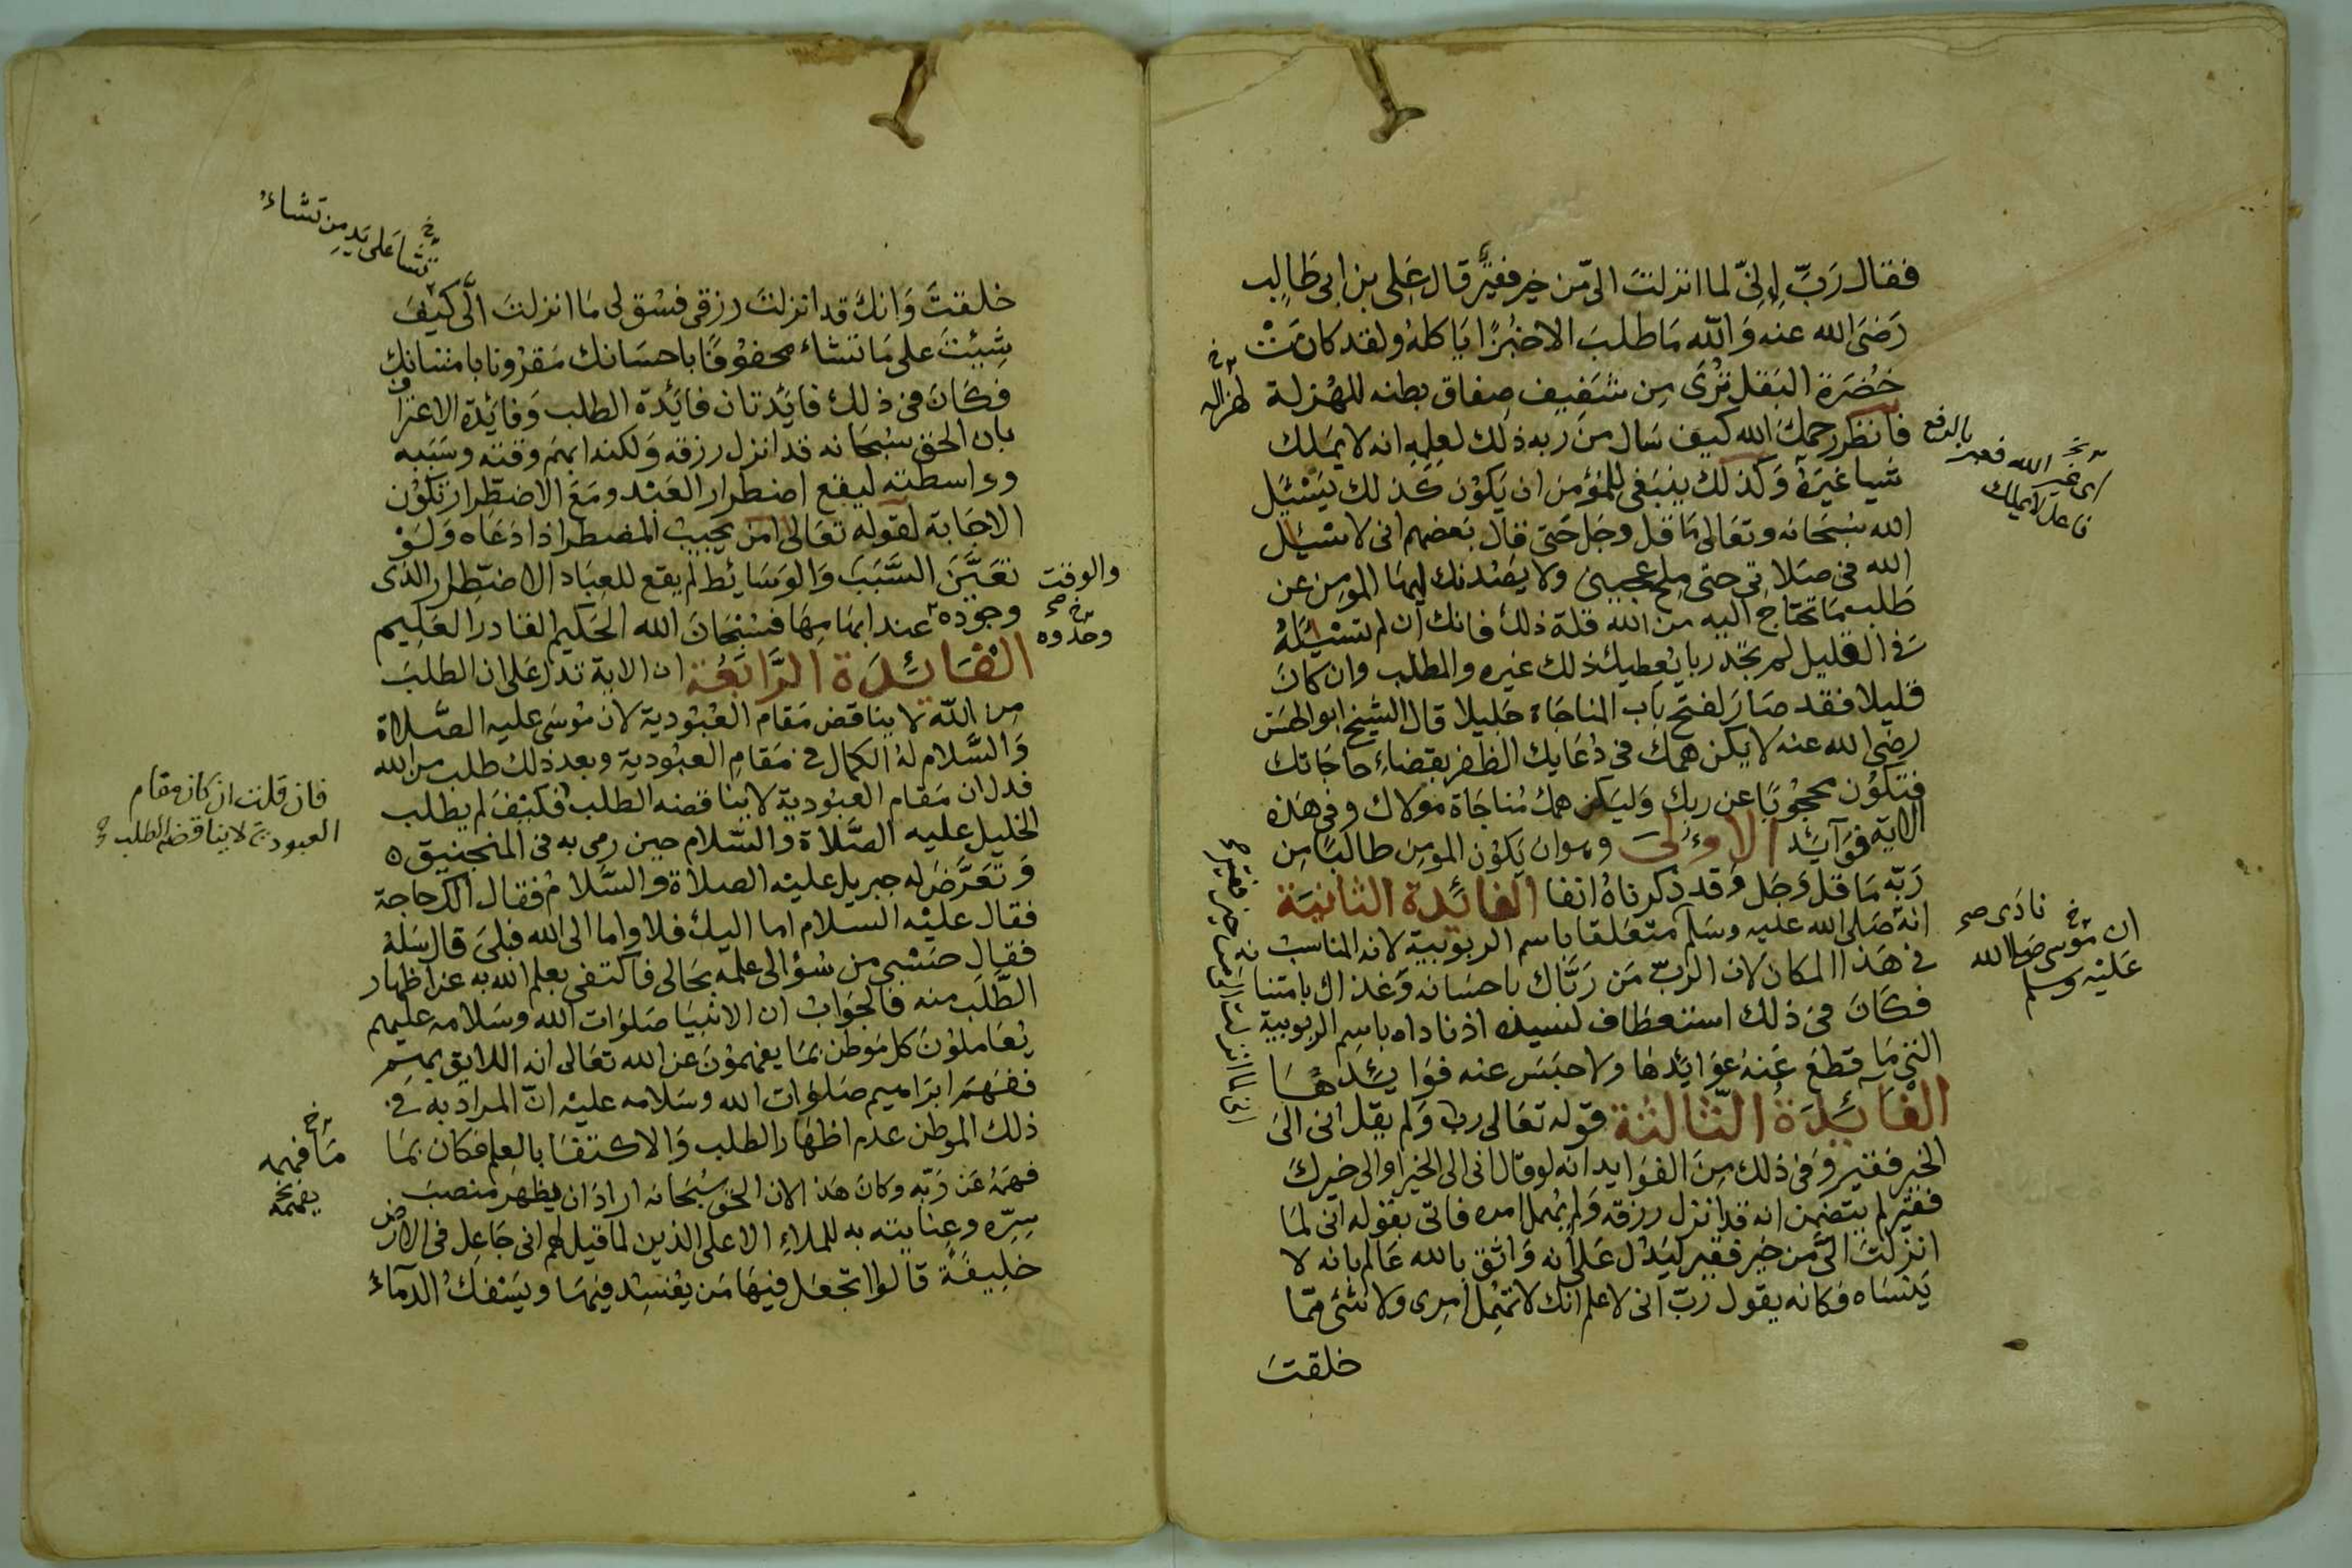 فقال رَبِّ إِنِّي لما انزلتَ الىّ من خير فقيرٌ قال عَلى بن ابى طَالِب
رَضىَ الله عنه وَالله مَا طلبَ الاخُبْزًا يَاكلهُ ولقد كان تْ
خُضرَة البَقل تُرَى مِن شَفِيف صِفاق بطنه للهُزلة
لهزاله
فانظر رحمكَ الله كيفَ سَال من ربه ذلك لعلمِهِ انه لا يمَلك
بالرفع
اى غير الله
فاعل لا يملك
شيا غيَرهُ وَكذلك ينبَغى للمُؤمن ان يَكوُن كَذلك يَسْئَل
الله سُبحَانه وتعَالى مَا قل وجَل حَتى قال بَعضهم انى لاسْئل
الله فى صَلاتى حتى مِلح عجيبنى ولا يصُدنك ايهَا المومِن عن
طَلب مَا تحتاج اليه من الله قلة ذلك فانك ان لم تسْئَلهُ
فى القليل لم تجد ربا يُعطيك ذلك غيره والمطلب وان كان
قليلا فقد صَارَ لفتح بَاب المناجَاة جَليلا قال الشيخ ابو الحسَن
رضى الله عنه لا يكن همك فى دُعَايك الظفر بقضاءِ حاجَاتك
فتكوُن محجوُبًا عن ربك وَليَكن همك مُناجَاة مَولاك وفى هَذه
الاية فوَآئد الاوُلىَ وهوان يَكوُن المومِن طالبًا مِن
رَبّه مَا قل وَجَل وَقد ذكرناهُ انفا الفائدة الثانيَة
انهُ صَلى الله عليه وسَلم متعَلقا باسم الربوبية لانه المناسب
ان مُوسى صَلى الله
عَليْه وسلم
نادَى صح
فى هَذا المكان لان الربّ مَن رَبَّاك باحسَانه وَغذاك بامتنا نه
فكانَ فى ذلك استعطاف لسيده اذ ناداه باسِم الربوبية
التى مَا قطعَ عَنهُ عوَايدهَا ولا حبَسَ عنه فوَايدَهَا
الفَائدَةُ الثّالثة قوله تعَالى رب وَلم يقل انى الىَ
الخير فقير وَفى ذلك مِنَ الفوَايد انه لوقال انى الى الخير اوالى خيرك
فقير لم يتضمن انه قد انزل رزقه وَلم يُهمل امره فاتى بقوله انى لمَا
انزلتَ الىَّ من خَير فقير ليَدُل عَلى انه وَاثق بالله عَالم بانه لا
يَنسَاه فكانه يقول رَبّ انى لاعلم انك لاتهمِل امرى ولا شئ ممّا
خلقتَ
تشا عَلى يَدِ مِن تشاءُ
خلقتَ وَانكَ قد انزلتَ رزقى فسُق لى مَا انزلتَ الىَّ كيفَ
شِيئتَ على مَا تشاء محفوُفا باحسَانك مَقرُونا بامتنانك
فكانَ فى ذلك فايَدتان فايَدة الطلب وَفايَدة الاعترا ف
بان الحق سُبحَانه قد انزل رزقه وَلكنه ابهَم وقته وسَبَبه
وواسطته ليقع اضطرار العَبْد ومَعَ الاضطرار تكوُن
الاجَابة لقوله تعَالى امن يجيبُ المضطر اذا دَعَاه وَلوْ
تعَيَّنَ السَّبَبَ وَالوسَائط لم يقع للعِبَاد الاضطِرار الذى
والوقت
وجوده عند ابهامهَا فسُبْحَانَ الله الحَكيم القادر العَلِيم
الفَائدَة الرَّابعَة ان الاية تدل عَلى ان الطلبَ
مِن الله لا يناقض مَقام العُبُودية لان مُوسَى عليه الصَّلاة
وَالسَّلام لهُ الكمال فى مَقام العبُودية وبعد ذلك طلب من الله
فدل ان مَقام العبُودية لا يناقضه الطلب فكيْفَ لم يطلب
فان قلت ان كان مقام
العبودية لا يناقضه الطلب صح
الخليل عليه الصَّلاة والسَّلام حين رمى به فى المنجنيق ٥
وَتعَرَّضَ له جبريل عليْه الصلاة والسَّلام فقال الك حاجة
فقال عليْه السلام اما اليك فلا واما الى الله فبلى قال سَلهُ
فقال حسْبى من سُؤالى علمه بحَالى فاكتفى بعلم الله به عن اظهار
الطَّلب منه فالجوَابْ ان الانبيَا صَلوَات الله وسَلامه عليهم
يُعَاملوُن كل مَوطن بمَا يفهموُنَ عن الله تعَالى انه اللايق بهم
ففهمَ ابرَاهيم صَلوَات الله وسَلامه عليْه انّ المرَاد به فى
ذلك الموطن عدم اظهَار الطلب وَالاكتفا بالعلم فكان بمَا
مَا فهمه
يفهمه
فهمَهُ عَن رَبّه وكان هَذ الان الحق سُبحَانه ارادَ ان يظهر منصبَ
سِرّه وعنايته به للملاءِ الاعلى الذين لما قيل لهم انى جَاعِل فى الارض
خلِيفَةً قالوا اتجعَل فيهَا مَن يفسِد فيهَا ويَسْفكُ الدمآء